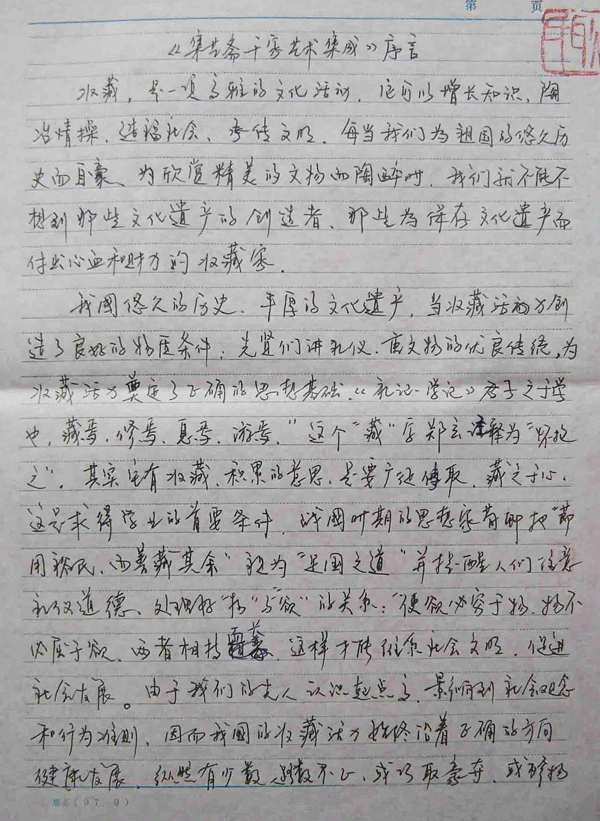 第 页
《集艺斋千家艺术集成》序言
收藏，是一项高雅的文化活动，它可以增长知识、陶
冶情操、造福社会、承传文明。每当我们为祖国的悠久历
史而自豪、为欣赏精美的文物而陶醉时，我们就不能不
想到那些文化遗产的创造者、那些为保存文化遗产而
付出心血和财力的收藏家。
我国悠久的历史、丰厚的文化遗产，为收藏活动创
造了良好的物质条件，先贤们讲礼仪、重文物的优良传统，为
收藏活动奠定了正确的思想基础。《礼记·学记》君子之于学
也，藏焉、修焉、息焉、游焉，"这个"藏"字郑玄注释为"怀抱
之"。其实它有收藏、积累的意思，是要广征博取，藏之于心，
这是求得学业的首要条件。战国时期的思想家荀卿把"节
用裕民，而善藏其余"视为"足国之道"并提醒人们注意
礼仪道德、处理好"物"与"欲"的关系："使欲必不穷于物，物不
必屈于欲，两者相持而长，这样才能维系社会文明，促进
社会发展。由于我们的先人认识起点高，影响到社会观念
和行为准则，因而我国的收藏活动始终沿着正确的方向
健康发展。纵然有少数 不 ，或巧取豪夺，或 物
(97.9)